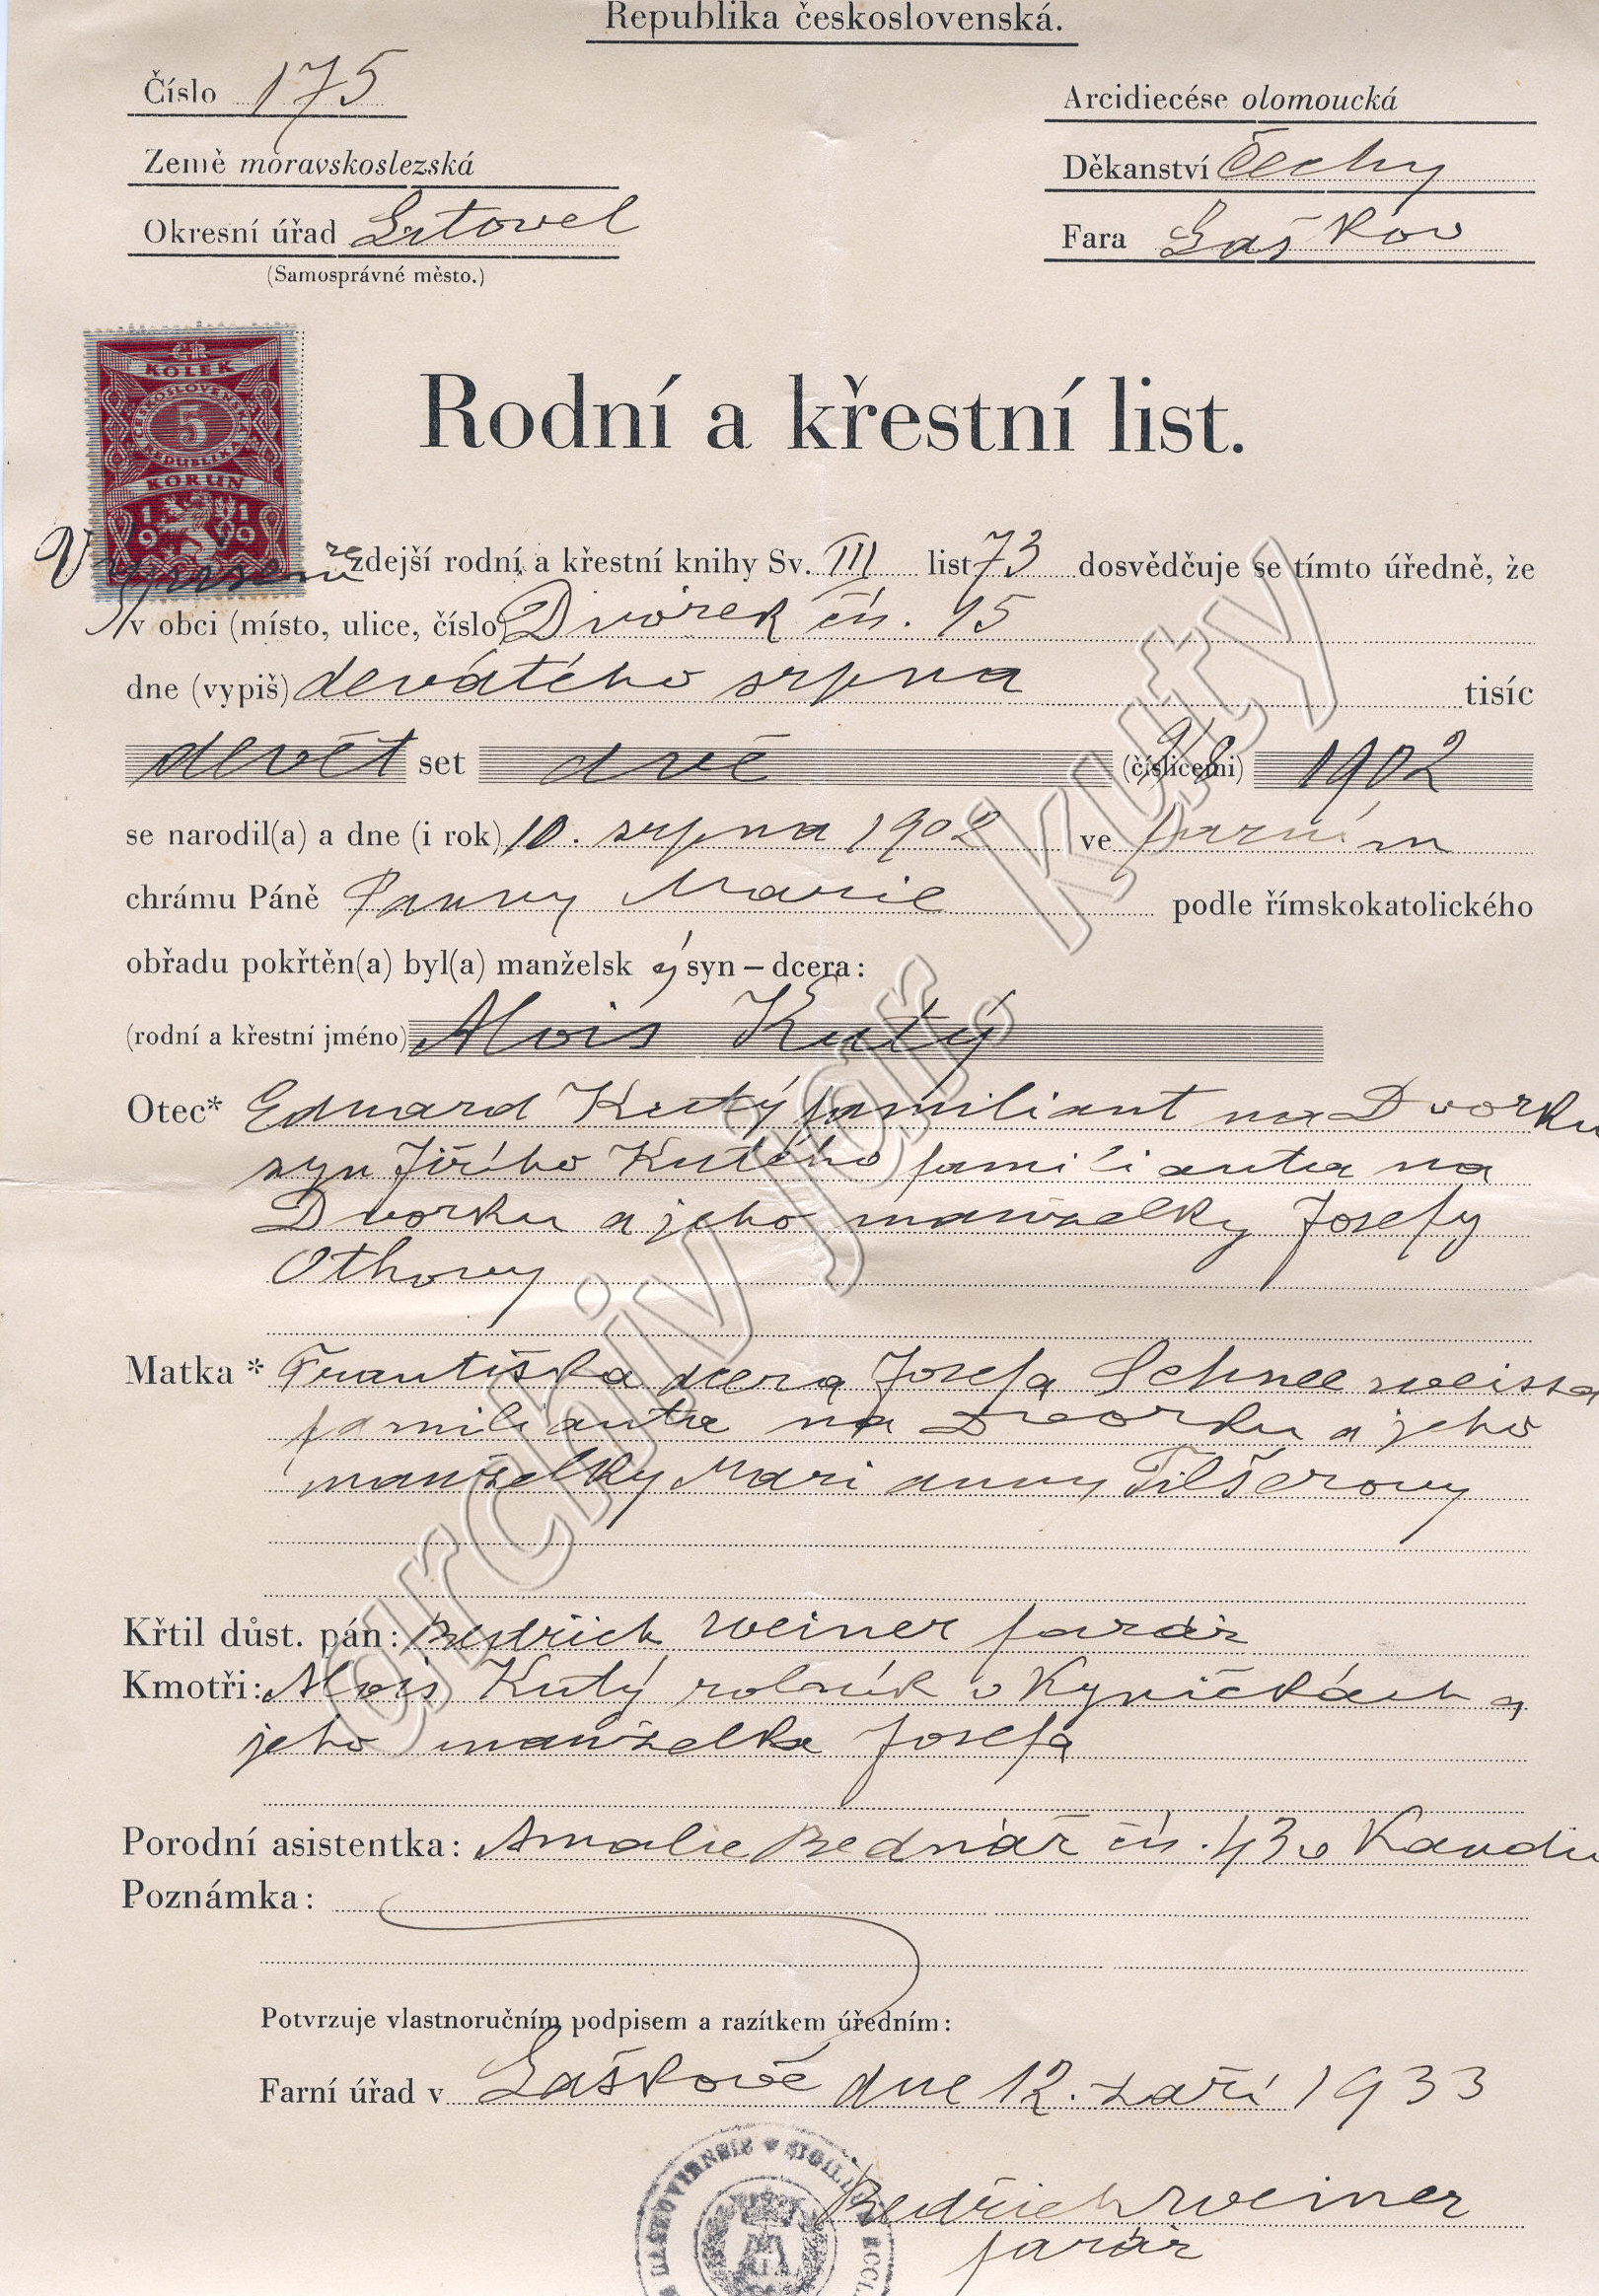 Republika československá.
Číslo 175
Arcidiecése olomoucká
Země moravskoslezská
Děkanství Čechy
Okresní úřad Litovel
Fara Laškov
(Samosprávné město.)
ČR
KOLEK
ČESKOSLOVENSKÁ
5
REPUBLIKA
KORUN
1919
Rodní a křestní list.
Výpisem ze zdejší rodní a křestní knihy Sv. III list 73 dosvědčuje se tímto úředně, že
v obci (místo, ulice, číslo) Dvorek čís. 15
dne (vypiš) devátého srpna tisíc
devět set dvě (číslicemi) 9/8 1902
se narodil(a) a dne (i rok) 10. srpna 1902 ve farním
chrámu Páně Panny Marie podle římskokatolického
obřadu pokřtěn(a) byl(a) manželsk ý syn – dcera:
(rodní a křestní jméno) Alois Kutý
Otec* Eduard Kutý familiant na Dvorku
syn Jiřího Kutého familianta na
Dvorku a jeho manželky Josefy
Othovy
Matka * Františka dcera Josefa Schneeweissa
familianta na Dvorku a jeho
manželky Marianny Filšerovy
Křtil důst. pán: Bedřich Weiner farář
Kmotři: Alois Kutý rolník v Kyničkách a
jeho manželka Josefa
Porodní asistentka: Amalie Bednář čís. 43 v Kandii
Poznámka:
Potvrzuje vlastnoručním podpisem a razítkem úředním:
Farní úřad v Laškově dne 12. září 1933
Bedřich Weiner
farář
archiv jar. kuty